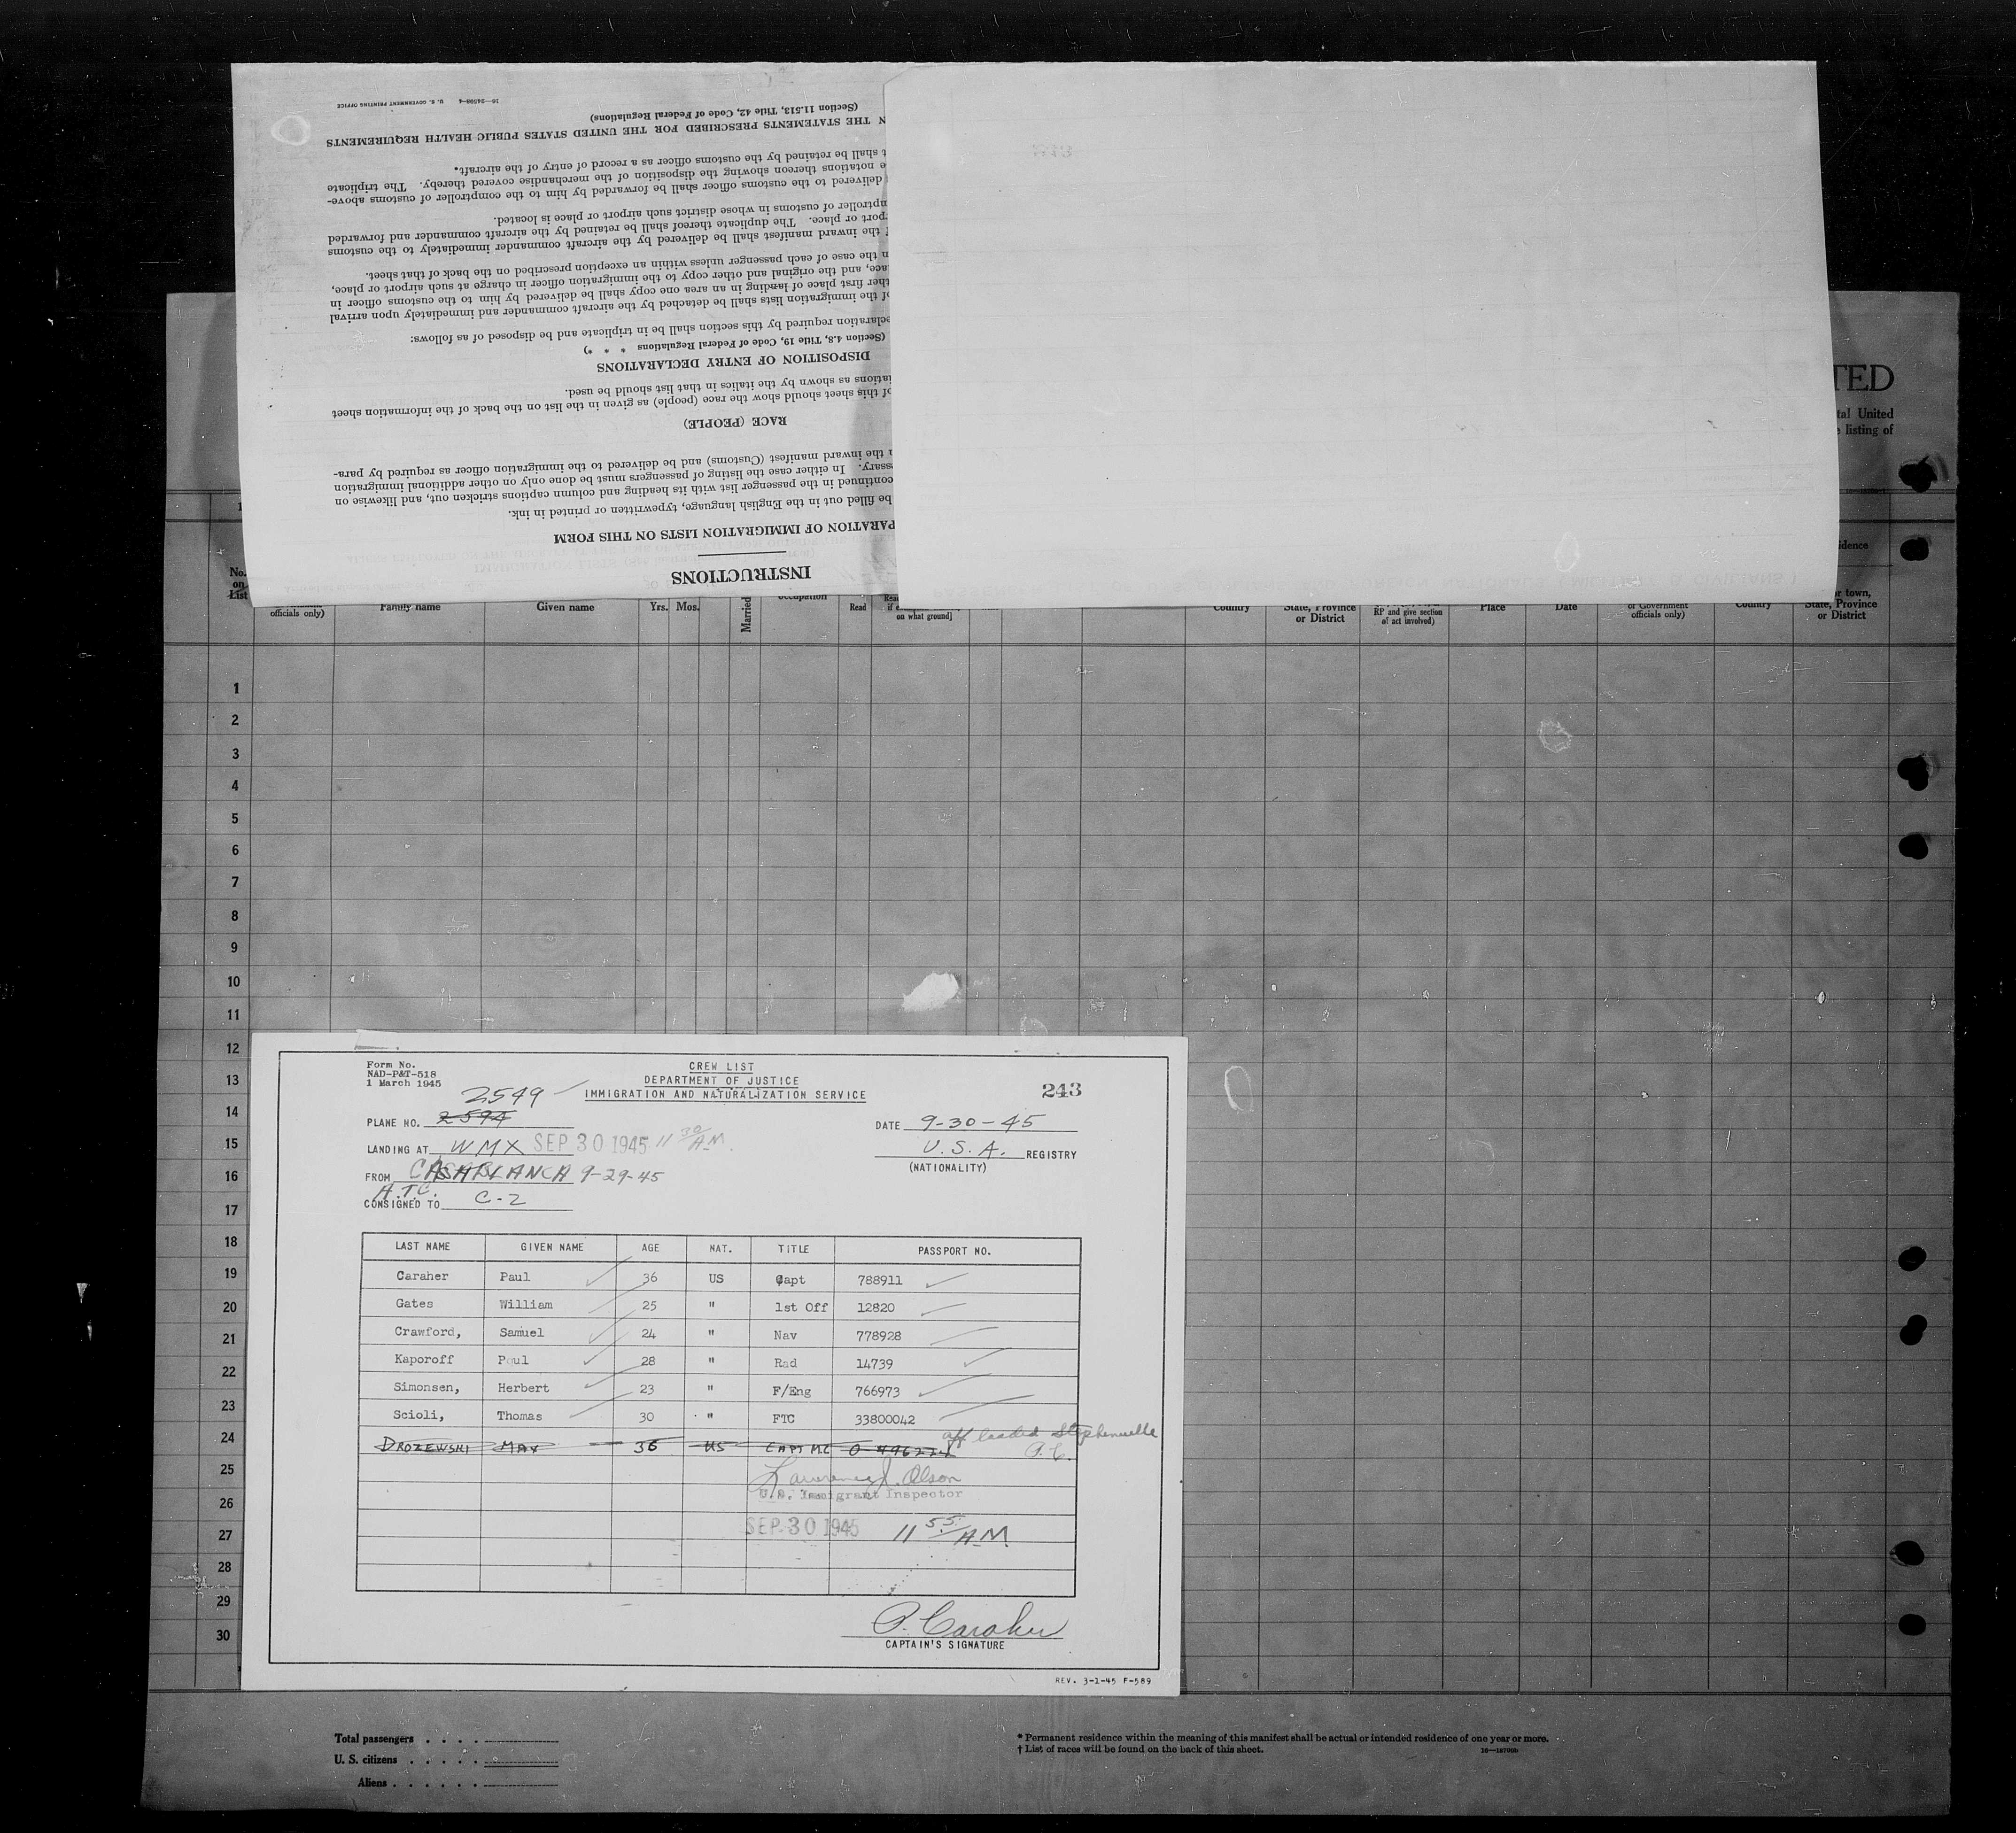 16—24598-4 U. S. GOVERNMENT PRINTING OFFICE
(Section 11.513, Title 42, Code of Federal Regulations)
N THE STATEMENTS PRESCRIBED FOR THE UNITED STATES PUBLIC HEALTH REQUIREMENTS
t shall be retained by the customs officer as a record of entry of the aircraft.
e notations thereon showing the disposition of the merchandise covered thereby. The triplicate
delivered to the customs officer shall be forwarded by him to the comptroller of customs above-
mptroller of customs in whose district such airport or place is located.
port or place. The duplicate thereof shall be retained by the aircraft commander and forwarded
f the inward manifest shall be delivered by the aircraft commander immediately to the customs
n the case of each passenger unless within an exception prescribed on the back of that sheet.
lace, and the original and other copy to the immigration officer in charge at such airport or place,
ther first place of landing in an area one copy shall be delivered by him to the customs officer in
of the immigration lists shall be detached by the aircraft commander and immediately upon arrival
eclaration required by this section shall be in triplicate and be disposed of as follows:
(Section 4.8, Title 19, Code of Federal Regulations * * *)
DISPOSITION OF ENTRY DECLARATIONS
iations as shown by the italics in that list should be used.
of this sheet should show the race (people) as given in the list on the back of the information sheet
RACE (PEOPLE)
n the inward manifest (Customs) and be delivered to the immigration officer as required by para-
ssary. In either case the listing of passengers must be done only on other additional immigration
continued in the passenger list with its heading and column captions stricken out, and likewise on
be filled out in the English language, typewritten or printed in ink.
PARATION OF IMMIGRATION LISTS ON THIS FORM
INSTRUCTIONS
TED
tal United
e listing of
idence
No. on List
officials only) Family name Given name Yrs. Mos. Married occupation Read on what ground] Country State, Province or District RP and give section of act involved) Place Date or Government officials only) Country or town, State, Province or District
1
2
3
4
5
6
7
8
9
10
11
12
13
14
15
16
17
18
19
20
21
22
23
24
25
26
27
28
29
30
Form No.
NAD-P&T-518
1 March 1945
CREW LIST
DEPARTMENT OF JUSTICE
IMMIGRATION AND NATURALIZATION SERVICE
243
2549
PLANE NO. 2594
DATE 9-30-45
LANDING AT WMX SEP 30 1945 11 30 AM.
U.S.A. REGISTRY
(NATIONALITY)
FROM CASABLANCA 9-29-45
A.T.C.
CONSIGNED TO C-2
LAST NAME GIVEN NAME AGE NAT. TITLE PASSPORT NO.
Caraher Paul 36 US Capt 788911
Gates William 25 " 1st Off 12820
Crawford, Samuel 24 " Nav 778928
Kaporoff Paul 28 " Rad 14739
Simonsen, Herbert 23 " F/Eng 766973
Scioli, Thomas 30 " FTC 33800042
off loaded Stephenville
DROZEWSKI MAX 36 US CAPT MC P.C.
Lawrence J. Olson
U.S. Immigrant Inspector
SEP 30 1945 11 55 AM.
P. Caraher
CAPTAIN'S SIGNATURE
REV. 3-1-45 F-589
Total passengers
U. S. citizens
Aliens
* Permanent residence within the meaning of this manifest shall be actual or intended residence of one year or more.
† List of races will be found on the back of this sheet.